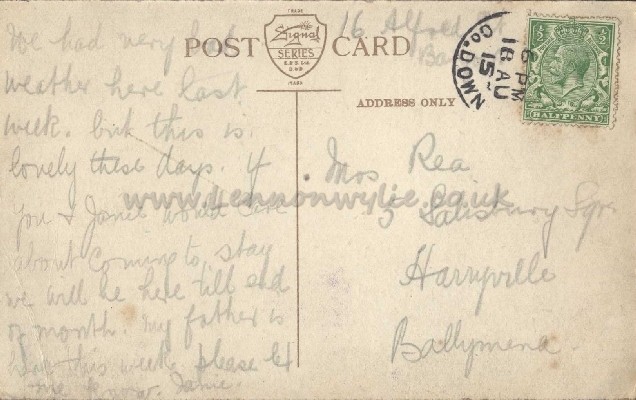 We had very bad
weather here last
week. but this is
lovely these days. if
you & Janie would care
about coming to stay
we will be here till end
of month. My father is
here this week. please let
me know. Janie.
16 Alfred St
POST CARD
TRADE
Signal
SERIES
E.P.S. Ltd.
MARK
ADDRESS ONLY
6 PM
18 AU
15
Co. DOWN
HALFPENNY
Mrs Rea
5 Salisbury Sqr.
Harryville
Ballymena.
www.lennonwylie.co.uk